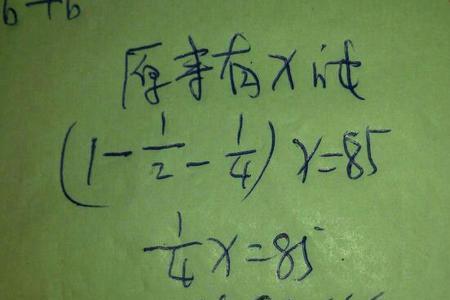 6+6
原来有x吨
(1-1/2-1/4)x=85
1/4x=85